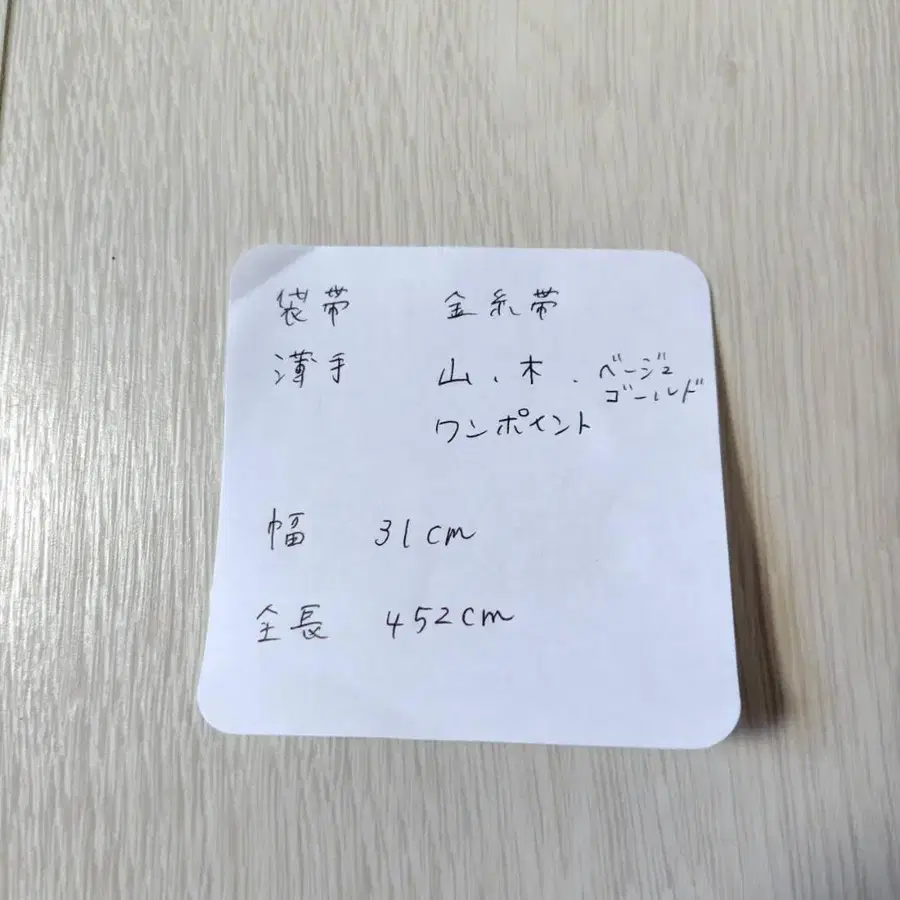 袋帯 金糸帯
薄手 山、木、ベージュ
ゴールド
ワンポイント
幅 31cm
全長 452cm